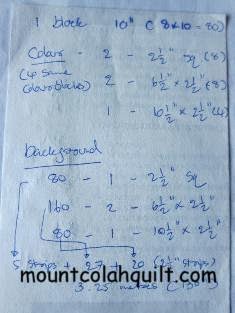 1 block 10" (8x10 = 80)
Colour - 2 - 2½" sq (8)
(4 same 2 - 6½" x 2½" (8)
colour blocks)
1 - 10½" x 2½" (4)
Background
80 - 1 - 2½" sq
160 - 2 - 6½" x 2½"
80 - 1 - 10½" x 2½"
5 strips + 27 + 20 (2½" strips)
3.25 metres
mountcolahquilt.com